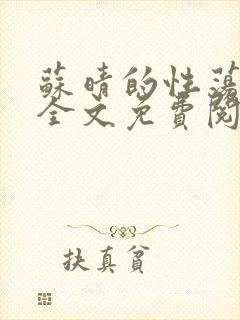 蘇晴的性蕩
全文免費閱
扶真貧